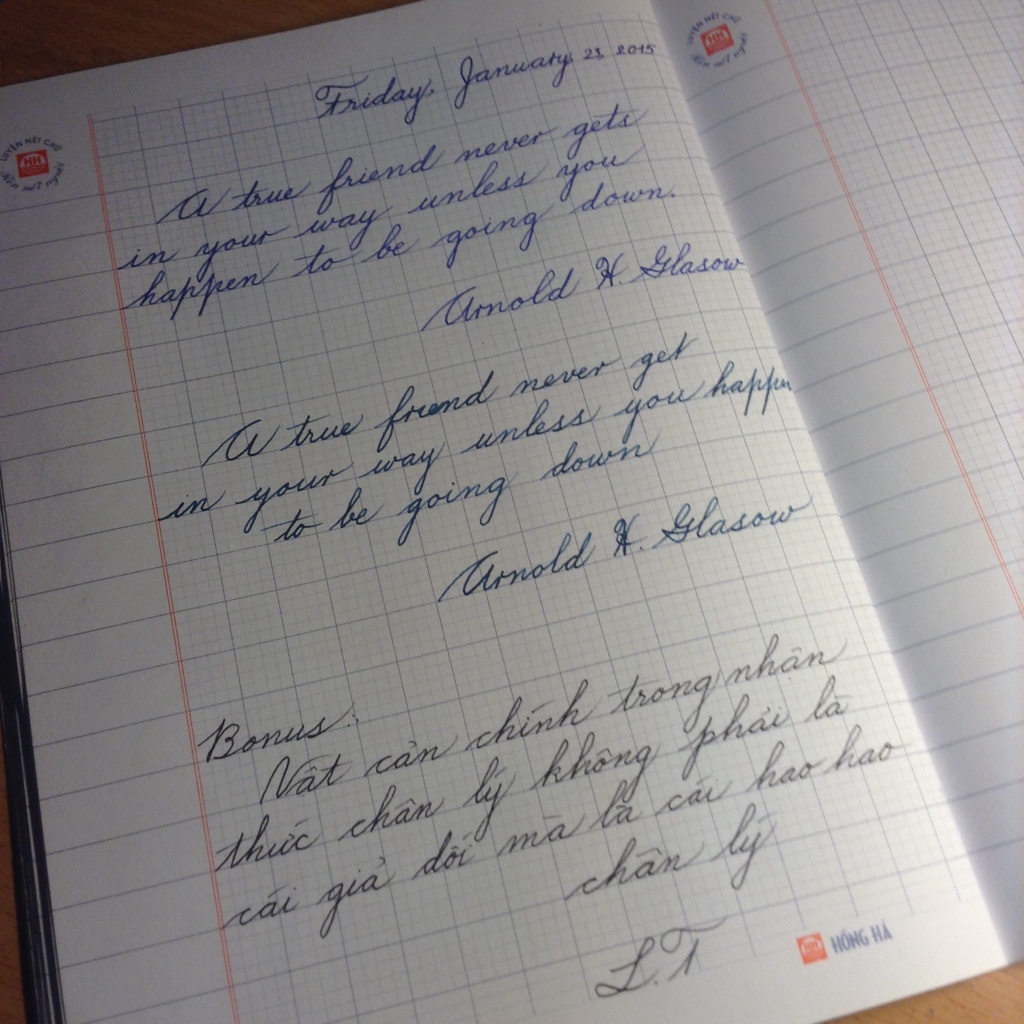 LUYỆN NÉT CHỮ
HH
Rèn nết người
LUYỆN NÉT CHỮ
HH
Rèn nết người
Friday, January 23, 2015
A true friend never gets
in your way unless you
happen to be going down.
Arnold H. Glasow
A true friend never get
in your way unless you happen
to be going down
Arnold H. Glasow
Bonus:
Vật cản chính trong nhận
thức chân lý không phải là
cái giả dối mà là cái hao hao
chân lý
L.T
HH HỒNG HÀ